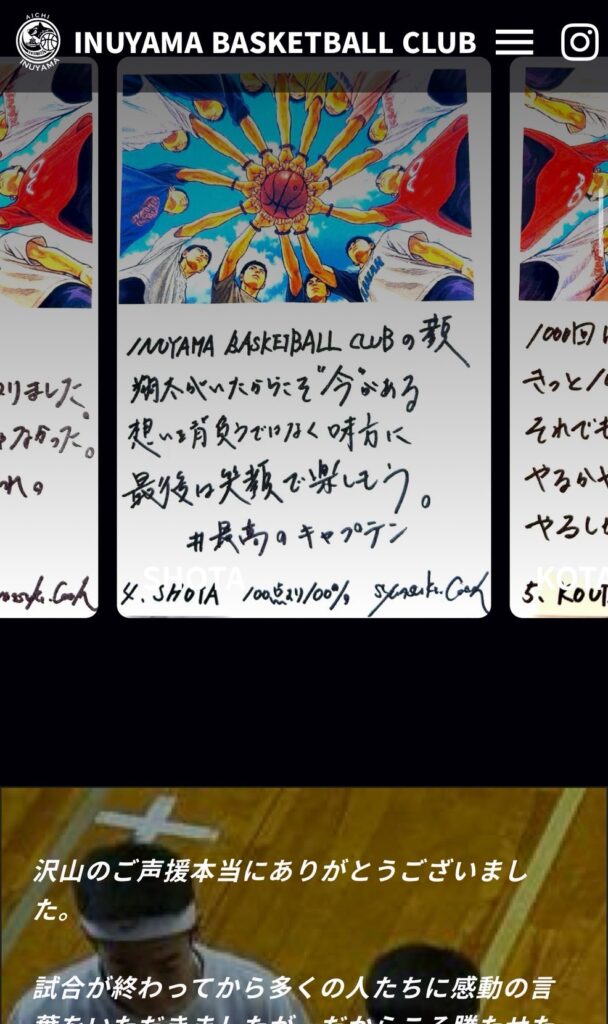 AICHI
INUYAMA
INUYAMA BASKETBALL CLUB
INUYAMA BASKETBALL CLUBの顔
翔太がいたからこそ"今"がある
想いを背負うではなく味方に
最後は笑顔で楽しもう。
#最高のキャプテン
SHOTA
4. SHOTA 100点より100%
りました。
なかった。
れ。
1000回
きっと
それでも
やるか
やるし
KOTA
5. KOUT
沢山のご声援本当にありがとうございまし
た。
試合が終わってから多くの人たちに感動の言
葉をいただきましたが、だからこそ勝ちせた